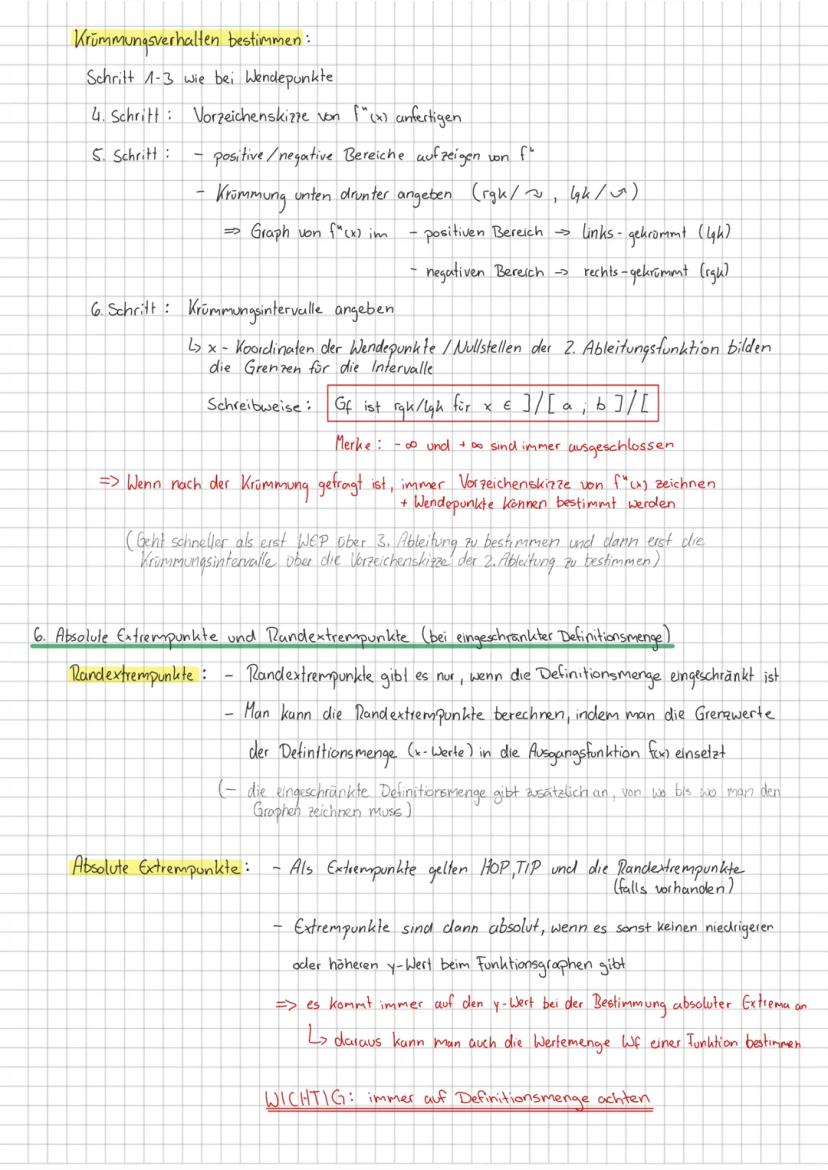 Krümmungsverhalten bestimmen:
Schritt 1-3 wie bei Wendepunkte
4. Schritt: Vorzeichenskizze von f"(x) anfertigen
5. Schritt: - positive/negative Bereiche aufzeigen von f"
- Krümmung unten drunter angeben (rgk/↷, lgk/⤻)
⇒ Graph von f"(x) im - positiven Bereich → links-gekrümmt (lgk)
- negativen Bereich → rechts-gekrümmt (rgk)
6. Schritt: Krümmungsintervalle angeben
↳ x-Koordinaten der Wendepunkte / Nullstellen der 2. Ableitungsfunktion bilden
die Grenzen für die Intervalle
Schreibweise: Gf ist rgk/lgk für x ∈ ]/[ a ; b ]/[
Merke: -∞ und +∞ sind immer ausgeschlossen
=> Wenn nach der Krümmung gefragt ist, immer Vorzeichenskizze von f"(x) zeichnen
+ Wendepunkte können bestimmt werden
(Geht schneller als erst WEP über 3. Ableitung zu bestimmen und dann erst die
Krümmungsintervalle über die Vorzeichenskizze der 2. Ableitung zu bestimmen)
6. Absolute Extrempunkte und Randextrempunkte (bei eingeschränkter Definitionsmenge)
Randextrempunkte: - Randextrempunkte gibt es nur, wenn die Definitionsmenge eingeschränkt ist
- Man kann die Randextrempunkte berechnen, indem man die Grenzwerte
der Definitionsmenge (x-Werte) in die Ausgangsfunktion f(x) einsetzt
(- die eingeschränkte Definitionsmenge gibt zusätzlich an, von wo bis wo man den
Graphen zeichnen muss)
Absolute Extrempunkte: - Als Extrempunkte gelten HOP, TIP und die Randextrempunkte
(falls vorhanden)
- Extrempunkte sind dann absolut, wenn es sonst keinen niedrigeren
oder höheren y-Wert beim Funktionsgraphen gibt
=> es kommt immer auf den y-Wert bei der Bestimmung absoluter Extrema an
↳ daraus kann man auch die Wertemenge Wf einer Funktion bestimmen
WICHTIG: immer auf Definitionsmenge achten